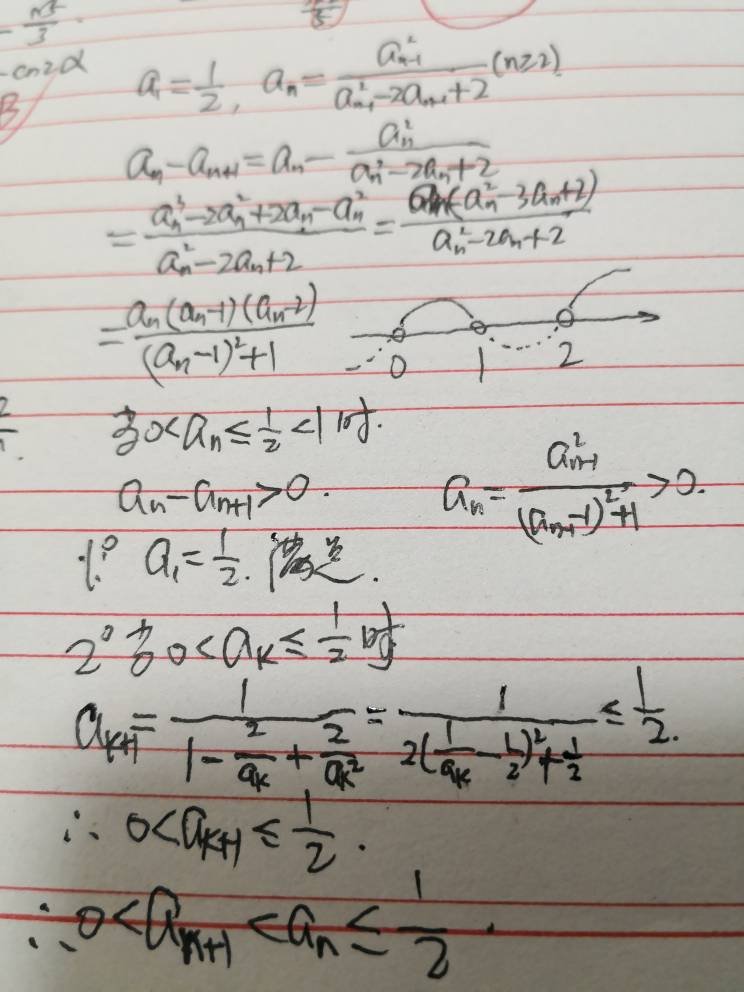 √5/3
-cos2α
B
a₁=1/2, aₙ=aₙ₋₁²/(aₙ₋₁²-2aₙ₋₁+2) (n≥2)
aₙ-aₙ₊₁=aₙ-aₙ²/(aₙ²-2aₙ+2)
=(aₙ³-2aₙ²+2aₙ-aₙ²)/(aₙ²-2aₙ+2)=aₙ(aₙ²-3aₙ+2)/(aₙ²-2aₙ+2)
=aₙ(aₙ-1)(aₙ-2)/((aₙ-1)²+1)
0 1 2
当0<aₙ≤1/2<1时.
aₙ-aₙ₊₁>0. aₙ=aₙ₋₁²/((aₙ₋₁-1)²+1)>0.
1° a₁=1/2. 满足.
2° 当0<aₖ≤1/2时
aₖ₊₁=1/(1-2/aₖ+2/aₖ²)=1/(2(1/aₖ-1/2)²+1/2)≤1/2.
∴ 0<aₖ₊₁≤1/2.
∴0<aₙ₊₁<aₙ≤1/2.